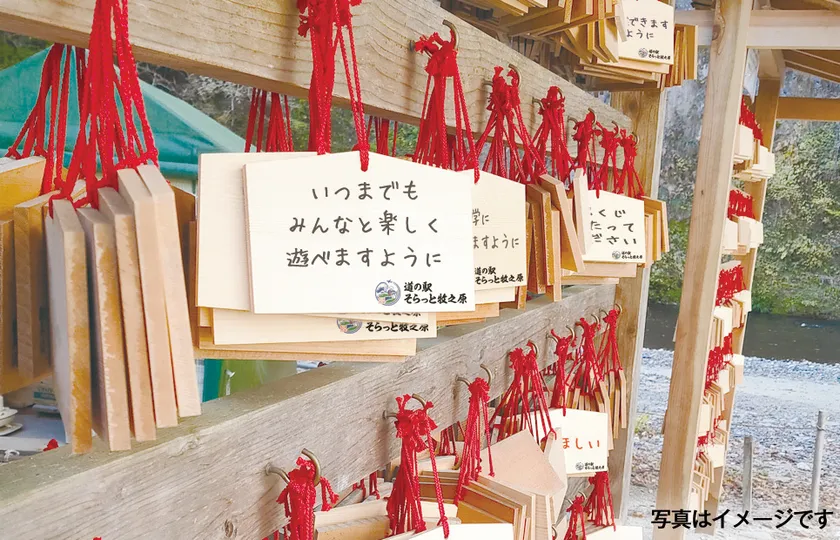 いつまでも
みんなと楽しく
遊べますように
道の駅
そらっと牧之原
そらっと牧之原
学に
ますように
道の駅
そらっと牧之原
くじ
たって
ださい
道の駅
そらっと牧之原
できます
ように
道の駅
そらっと牧之原
ほしい
道の駅
そらっと牧之原
写真はイメージです